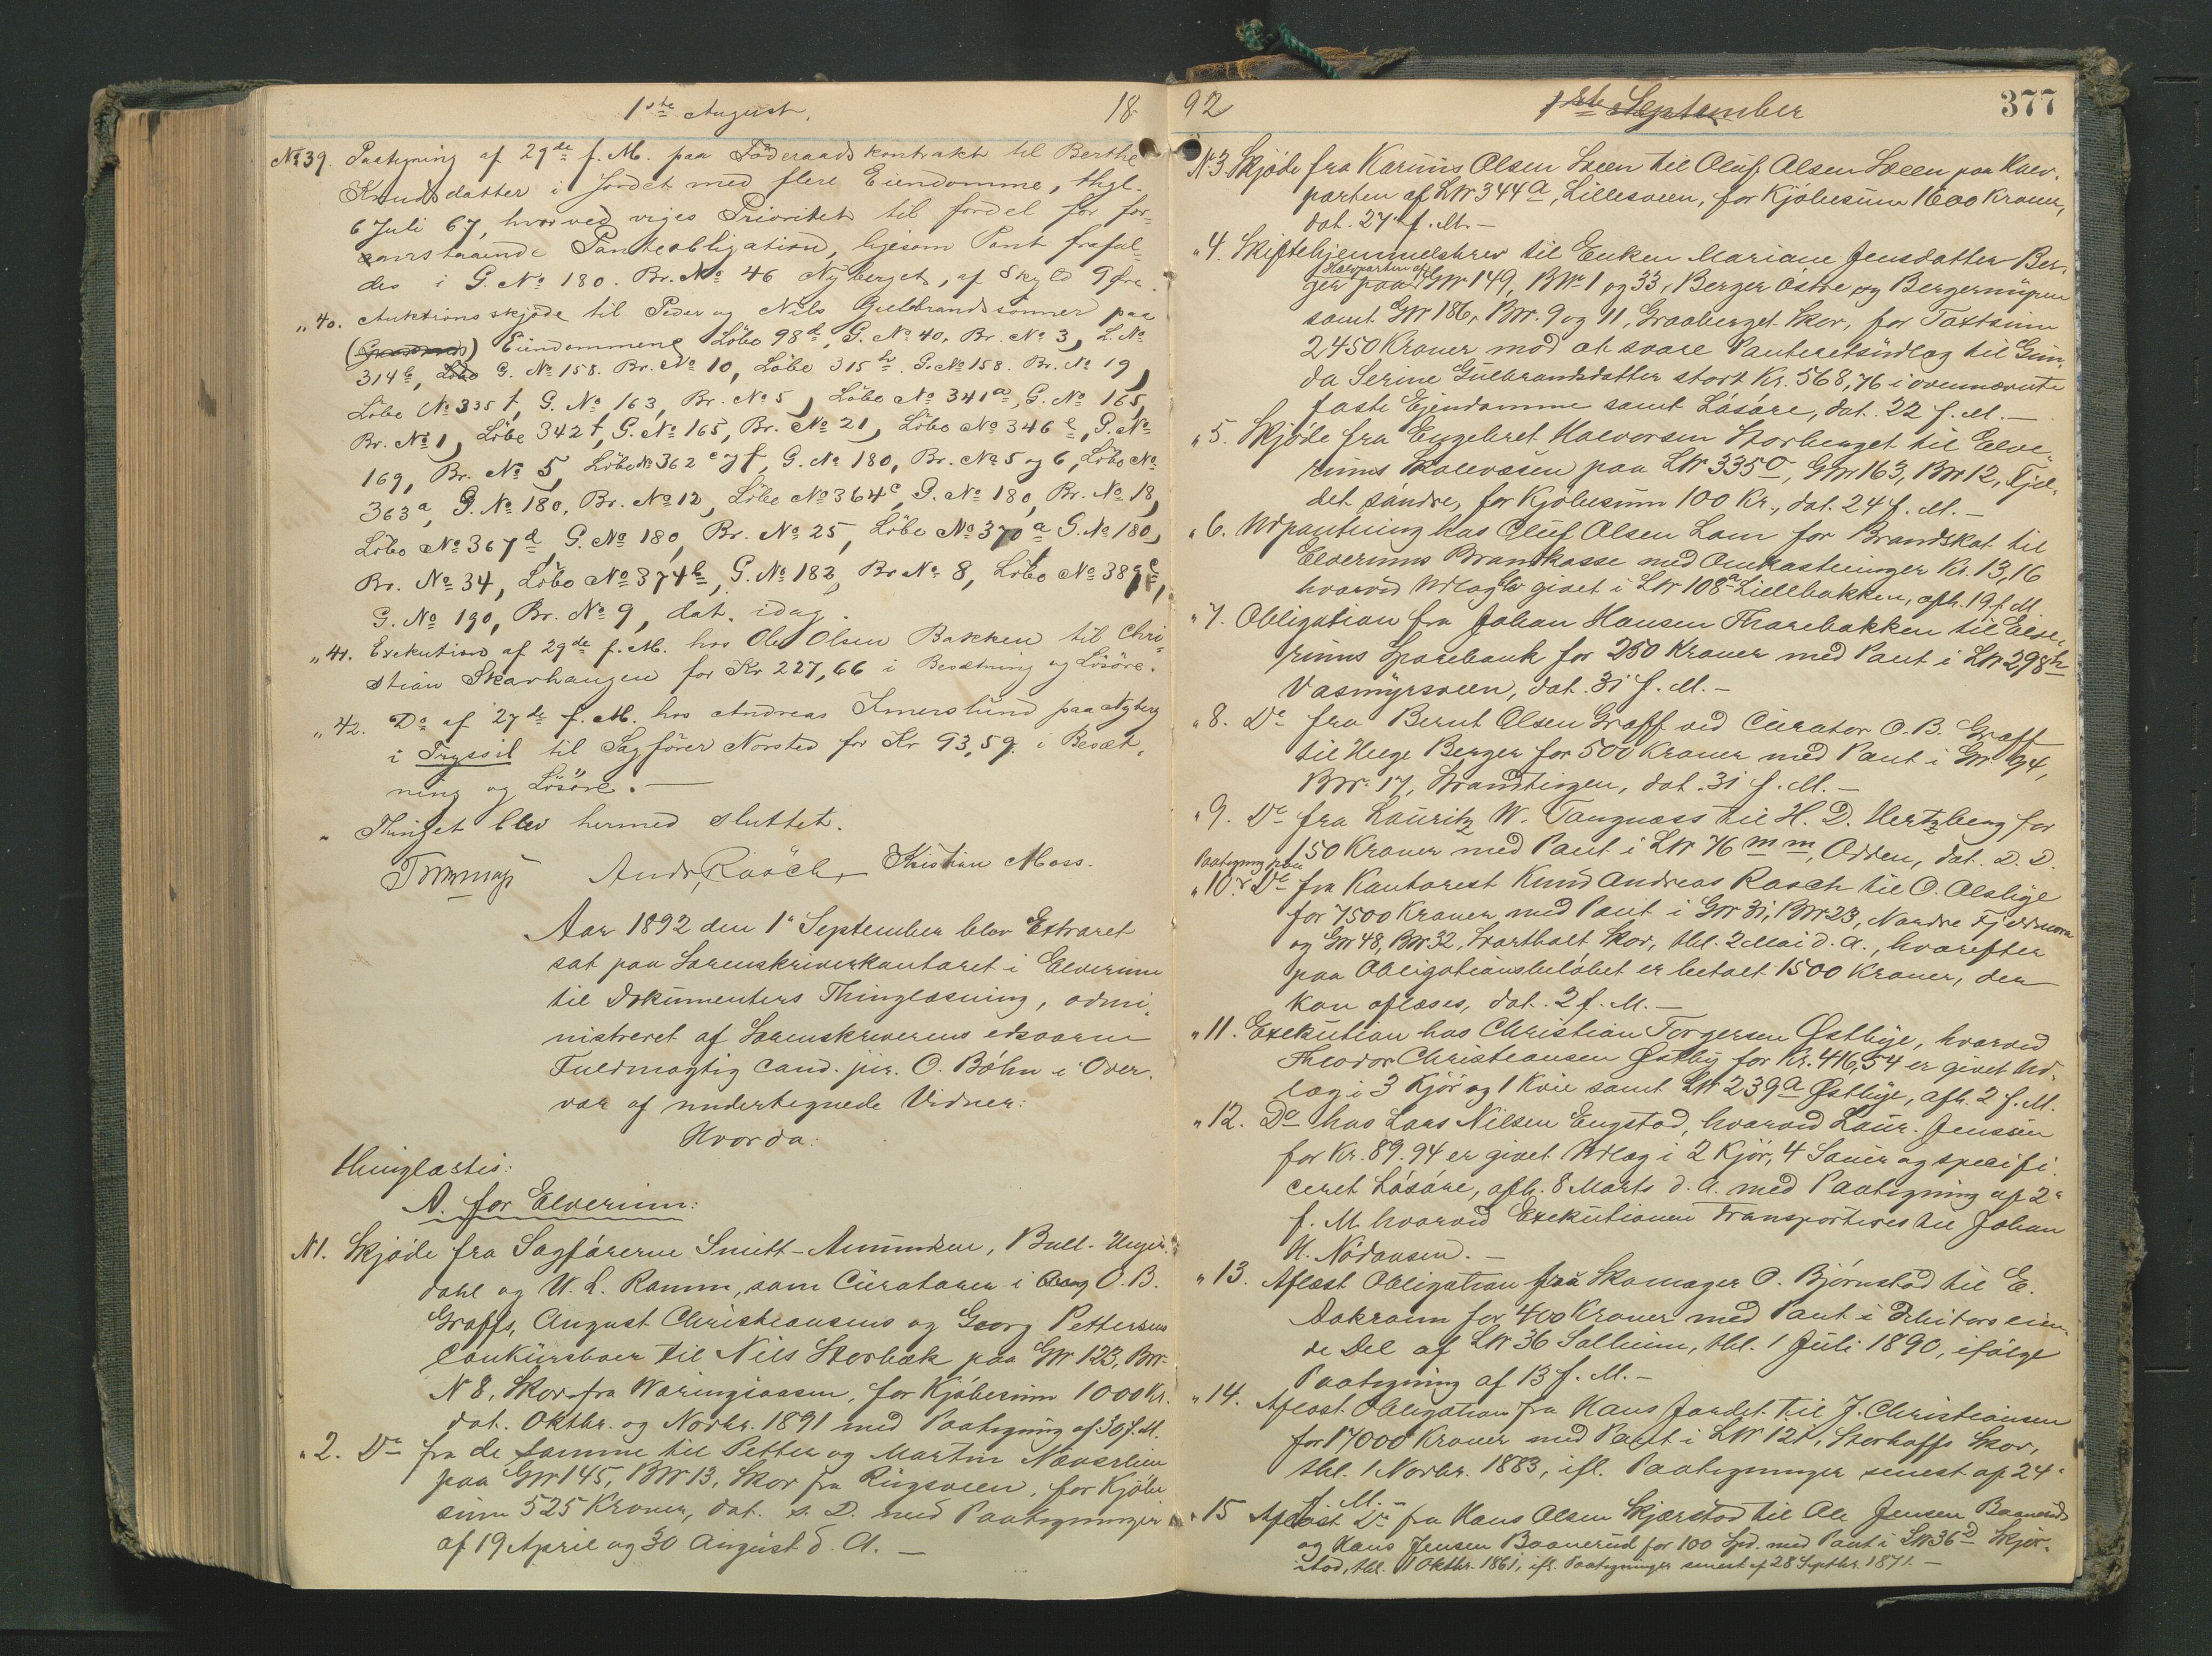 1ste August.
18
No 39. Paategning af 29de f. M. paa Föderaadskontrakt til Berthe
Knudsdatter i Jordet med flere Eiendomme, thgl.
6 Juli 67, hvorved viges Prioritet til fordel for for-
anstaaende Panteobligation, ligesom Pant frafal-
des i G. No 180. Br. No 46 Nyberget, af Skyld 9 Øre.
" 40. Auktionsskjøde til Peder og Nils Gulbrandssönner paa
Eiendommene Löbe 98d, G. No 40, Br. No 3, L. No
314b, Löbe G. No 158. Br. No 10, Löbe 315b. G. No 158. Br. No 19,
Löbe No 335f, G. No 163, Br. No 5, Löbe No 341a, G. No 165,
Br. No 1, Löbe 342f, G. No 165, Br. No 21, Löbe No 346e, G. No
169, Br. No 5, Löbe No 362e og f, G. No 180, Br. No 5 og 6, Löbe No
363a, G. No 180, Br. No 12, Löbe No 364c, G. No 180, Br. No 18,
Löbe No 367d, G. No 180, Br. No 25, Löbe No 370a G. No 180,
Br. No 34, Löbe No 374b, G. No 182, Br No 8, Löbe No 389e,
G. No 190, Br. No 9, dat. idag.
" 41. Exekution af 29de f. M. hos Ole Olsen Bakken til Chri-
stian Skarhaugen for Kr 227,66 i Besætning og Lösöre.
" 42. Do af 27de f. M. hos Andreas Imerslund paa Nyberg
i Trysil til Sagfører Norsted for Kr 93,59. i Besæt-
ning og Lösöre.
" Thinget blev hermed sluttet.
Andr. Raach Kristian Moss.
Aar 1892 den 1ste September blev Extraret
sat paa Sorenskriverkontoret i Elverum
til Dokumenters Thinglæsning, admi-
nistreret af Sorenskriverens edsvorne
Fuldmægtig cand. jur. O. Böhn i Over-
vær af undertegnede Vidner:
Hvorda:
thinglæstes:
A. for Elverum:
N 1. Skjöde fra Sagförerne Smitt-Amundsen, Bull-Unger-
dahl og U. L. Ramm, som Curatorer i O. B.
Graffs, August Christiansens og Georg Pettersens
Conkursboer til Nils Storbæk paa GNr 123, BNr
N 8, Skov fra Waringsaasen, for Kjöbesum 1000 Kr.
dat. Oktbr. og Novbr. 1891 med Paategning af 30 f. M.
" 2. Do fra de samme til Petter og Martin Næverlien
paa GNr 145, BNr 13, Skov fra Rugsveen, for Kjöbe
sum 525 Kroner, dat. s. D. med Paategninger
af 19 April og 30 August d. A. —
92
1ste September
377
N 3. Skjöde fra Karinus Olsen Sveen til Oluf Olsen Sveen paa Halv-
parten af LNr 344a, Lillesveen, for Kjöbesum 1600 Kroner,
dat. 27 f. M. —
" 4. Skiftehjemmelsbrev til Enken Mariane Jensdatter Ber-
Halvparten af
ger paa GNr 149, BNr 1 og 33, Berger östre og Bergermyren
samt GNr 186, BNr. 9 og 11, Graaberget Skov, for Taxtsum
2450 Kroner mod at svare Panteretsudlæg til Gun-
da Serine Gulbrandsdatter stort Kr. 568,76 i ovennævnte
faste Ejendomme samt Lösöre, dat. 22 f. M. —
" 5. Skjöde fra Engebret Halvorsen Storberget til Elve-
rums Skolevæsen paa LNr 335o, GNr 163, BNr 12, Fjel-
det söndre, for Kjöbesum 100 Kr., dat. 24 f. M. —
" 6. Udpantning hos Oluf Olsen Lam for Brandskat til
Elverums Brandkasse med Omkostninger Kr. 13,16
hvorved Udlæg er givet i LNr 108a Lillebakken, afh. 19 f. M.
" 7. Obligation fra Johan Hansen Tharebakken til Elve-
rums Sparebank for 250 Kroner med Pant i LNr 298h
Vasmyrsveen, dat. 31 f. M. —
" 8. Do fra Bernt Olsen Graff ved Curator O. B. Graff
til Helge Berger for 500 Kroner med Pant i GNr 94,
BNr. 17, Strandtingen, dat. 31 f. M. —
" 9. Do fra Lauritz W. Tangnæss til H. D. Hertzberg for
150 Kroner med Pant i LNr 76 mm, Odden, dat. D. D.
Paategning paa
" 10. Do fra Kontorist Knud Andreas Raach til O. Olslye
for 7500 Kroner med Pant i GNr 31, BNr 23, Nordre Fjeldmora
og GNr 48, BNr 32, Svartholt Skov, thl. 2 Mai d. A., hvorefter
paa Obligationsbelöbet er betalt 1500 Kroner, der
kan aflæses, dat. 2 f. M. —
" 11. Exekution hos Christian Torgersen Østbye, hvorved
Theodor Christiansen Østby for Kr. 416,54 er givet Ud-
læg i 3 Kjör og 1 Kvie samt LNr 239a Østbye, afh. 2 f. M.
" 12. Do hos Lars Nilsen Engstad, hvorved Laur. Jensen
for Kr. 89.94 er givet Udlæg i 2 Kjör, 4 Sauer og specifi-
ceret Lösöre, afh. 8 Marts d. A. med Paategning af 2
f. M. hvorved Exekutionen transporteres til Johan
N. Nödausen. —
" 13. Aflæst Obligation fra Skomager O. Björnstad til E.
Aakrann for 400 Kroner med Pant i Debitors eien-
de Del af LNr 36 Solheim, thl. 1 Juli 1890, ifölge
Paategning af 13 f. M. —
" 14. Aflæst Obligation fra Hans Jordet til J. Christiansen
for 17000 Kroner med Pant i LNr 121, Storhoffs Skov,
thl. 1 Novbr. 1883, ifl. Paategninger senest af 24
f. M. —
" 15 Aflæst Do fra Hans Olsen Skjærstad til Ole Jensen Baanerud
og Hans Jensen Baanerud for 100 Spd. med Pant i LNr 36d Skjær-
stad, thl. 1 Oktbr. 1861, ifl. Paategninger senest af 28 Septbr. 1871. —